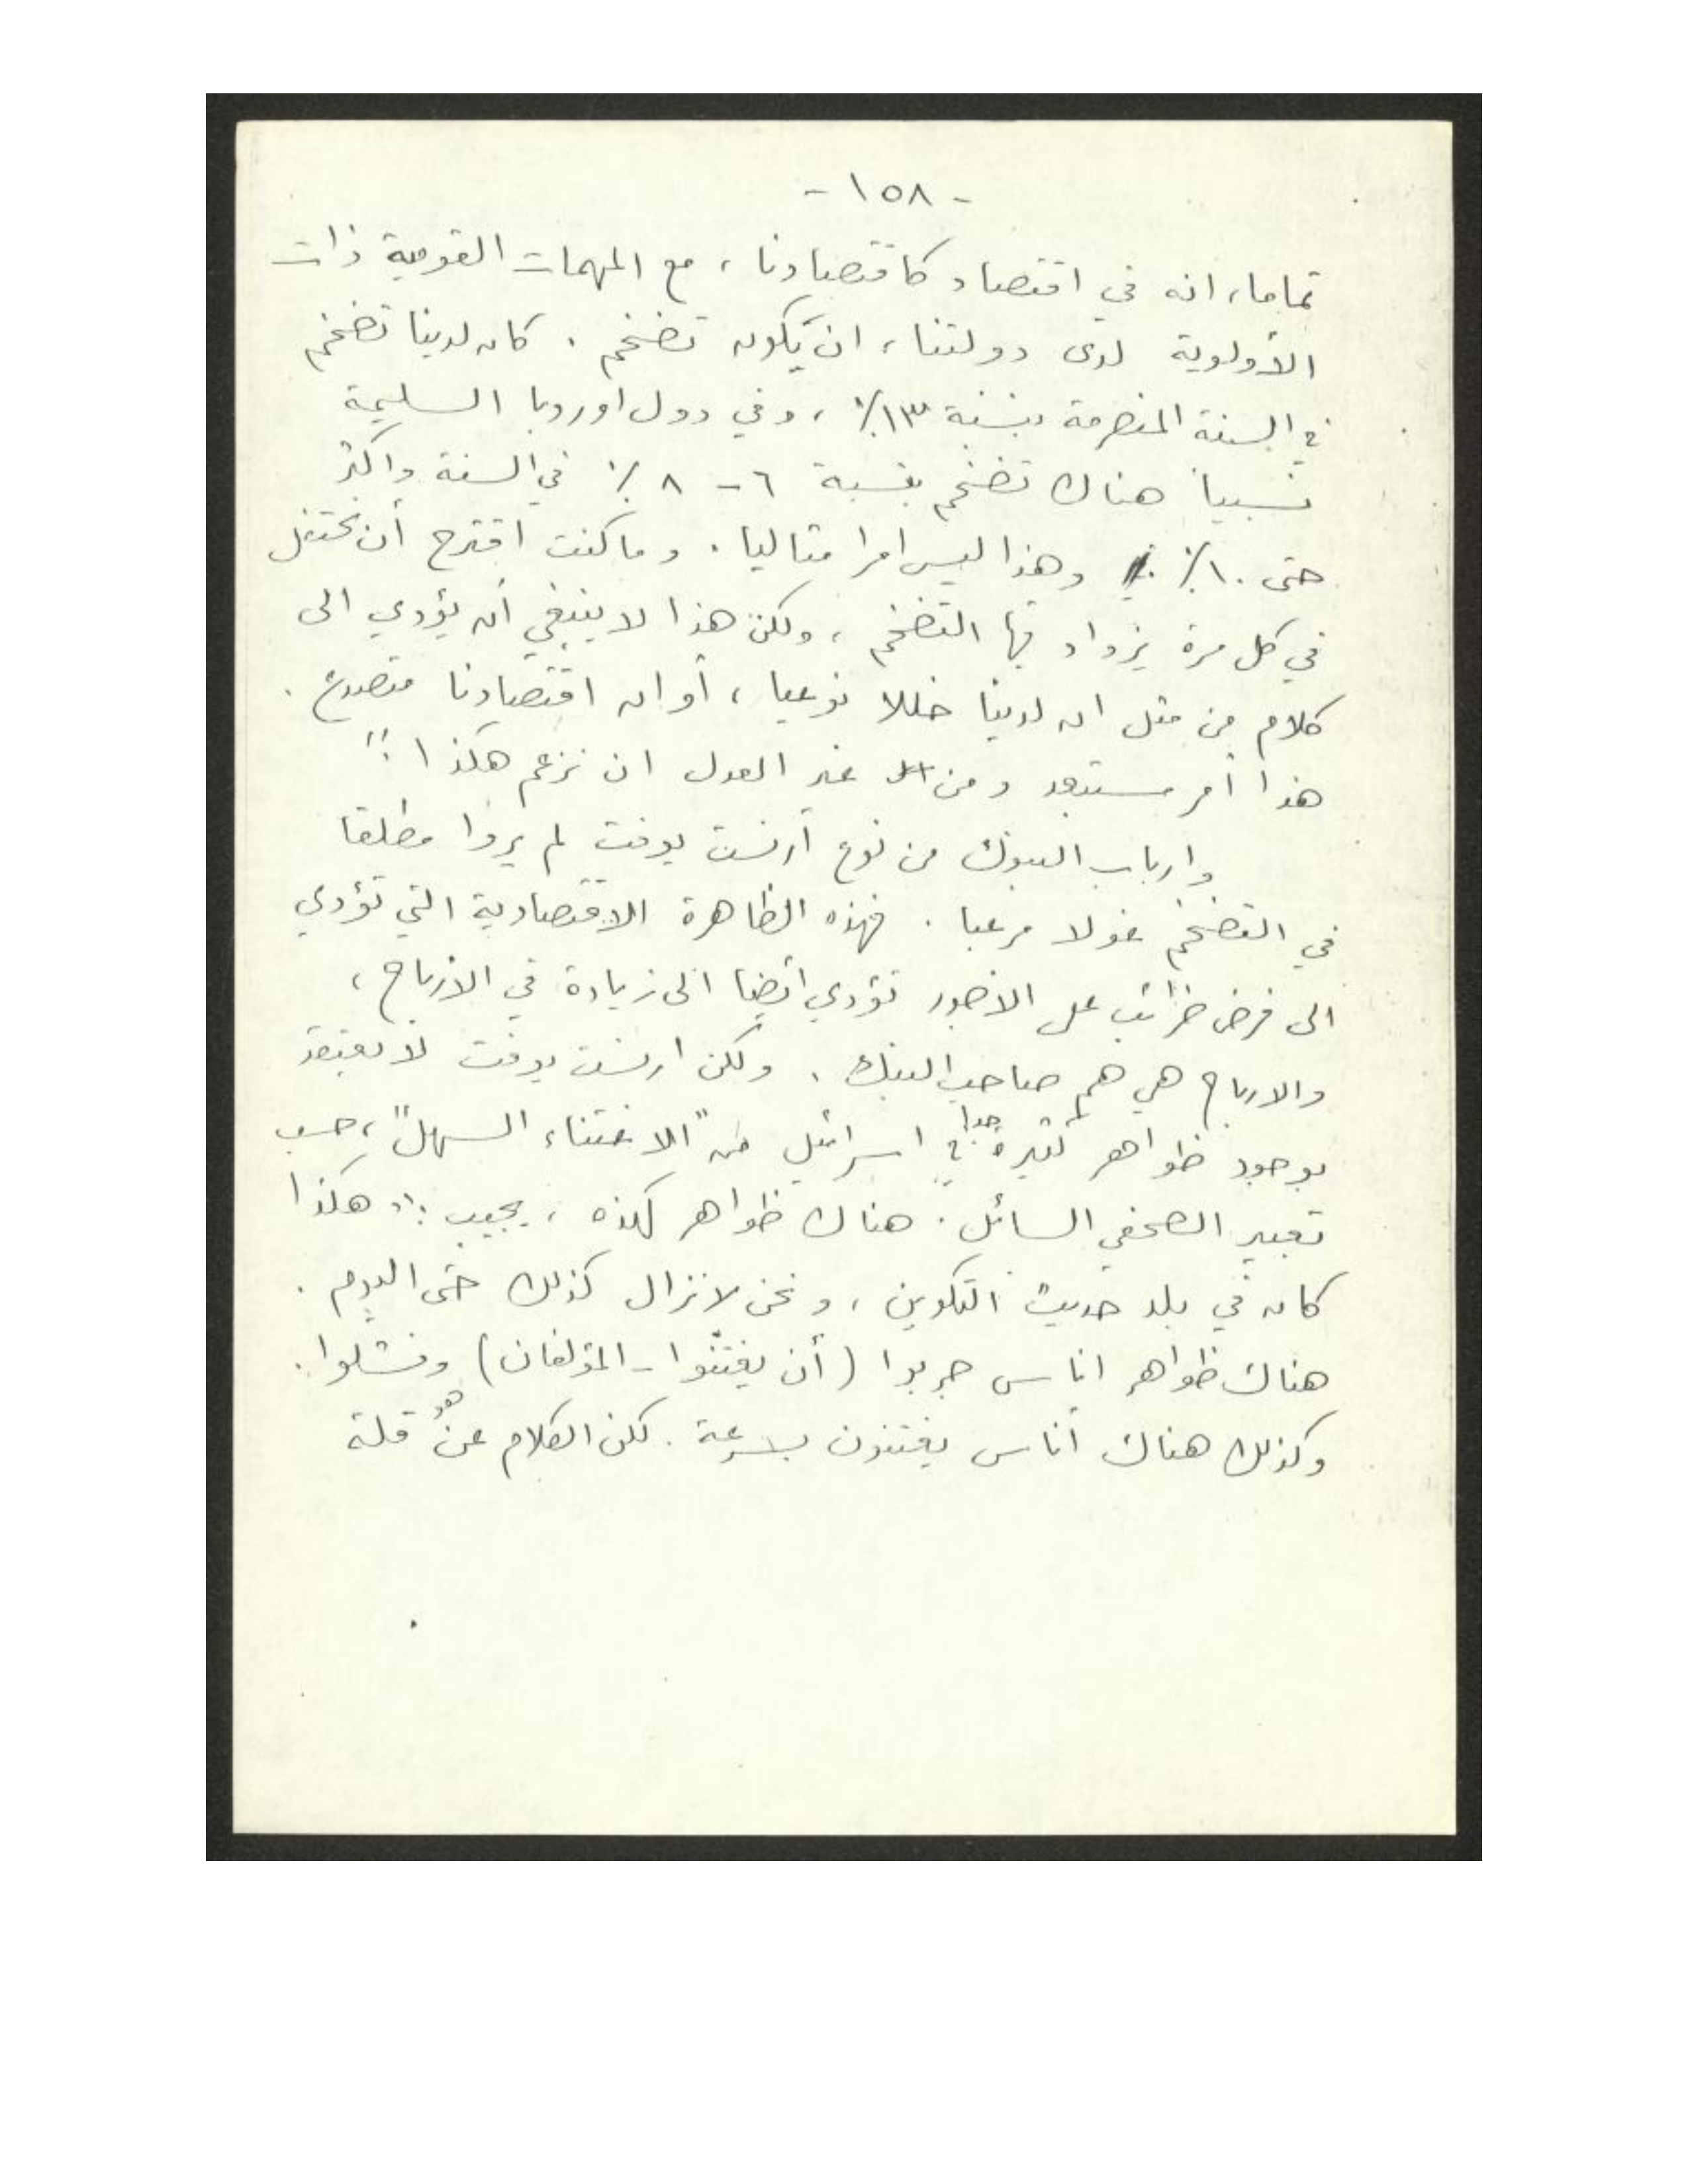 - ١٥٨ -
تماما، انه في اقتصاد كاقتصادنا، مع المهمات القومية ذات
الأولوية لدى دولتنا، ان يكون تضخم. كان لدينا تضخم
في السنة المنصرمة بنسبة ١٣٪، وفي دول اوروبا السليمة
نسبيا هناك تضخم بنسبة ٦ - ٨ ٪ في السنة واكثر
حتى ١٠٪ وهذا ليس امرا مثاليا. وما كنت اقترح أن نحتفل
في كل مرة يزداد فيها التضخم، ولكن هذا لا ينبغي ان يؤدي الى
كلام من مثل ان لدينا خللا نوعيا، أو ان اقتصادنا متصدع.
هذا أمر مستبعد ومن غير العدل ان نزعم هكذا".
وارباب البنوك من نوع أرنست يوفت لم يروا مطلقا
في التضخم غولا مرعبا. فهذه الظاهرة الاقتصادية التي تؤدي
الى فرض ضرائب على الاجور تؤدي ايضا الى زيادة في الارباح،
والارباح هي هم صاحب البنك. ولكن ارنست يوفت لا يعتقد
بوجود ظواهر كثيرة جدا في اسرائيل من "الاغتناء السهل"، حسب
تعبير الصحفي السائل. هناك ظواهر كهذه، يجيب: "هكذا
كان في بلد حديث التكوين، ونحن لا نزال كذلك حتى اليوم.
هناك ظواهر اناس جربوا (أن يغتنوا - المؤلفان) وفشلوا.
وكذلك هناك أناس يغتنون بسرعة. لكن الكلام هو عن قلة